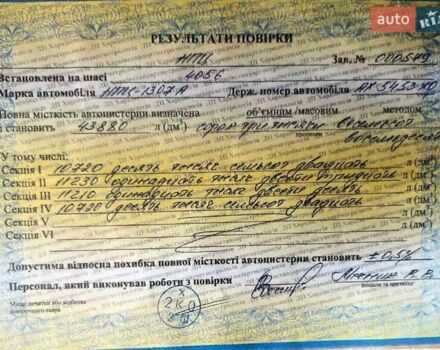 auto RIA
РЕЗУЛЬТАТИ ПОВІРКИ
АТЦ Зав. № 000549
Встановлена на шасі 4056
Марка автомобіля НТЦ-1307А Держ. номер автомобіля АХ 5453 ХО
Повна місткість автоцистерни визначена об'ємним / масовим методом
і становить 43880 л (дм³) сорок три тысячи восемьсот
восемьдесят
У тому числі:
Секція I 10720 десять тысяч семьсот двадцать л (дм³)
Секція II 11230 одиннадцать тысяч двести тридцать л (дм³)
Секція III 11210 одиннадцать тысяч двести десять л (дм³)
Секція IV 10720 десять тысяч семьсот двадцать л (дм³)
Секція V л (дм³)
Секція VI л (дм³)
Допустима відносна похибка повної місткості автоцистерни становить ±0,5%
Персонал, який виконував роботи з повірки
Місце печатки або відбитка
повірочного тавра